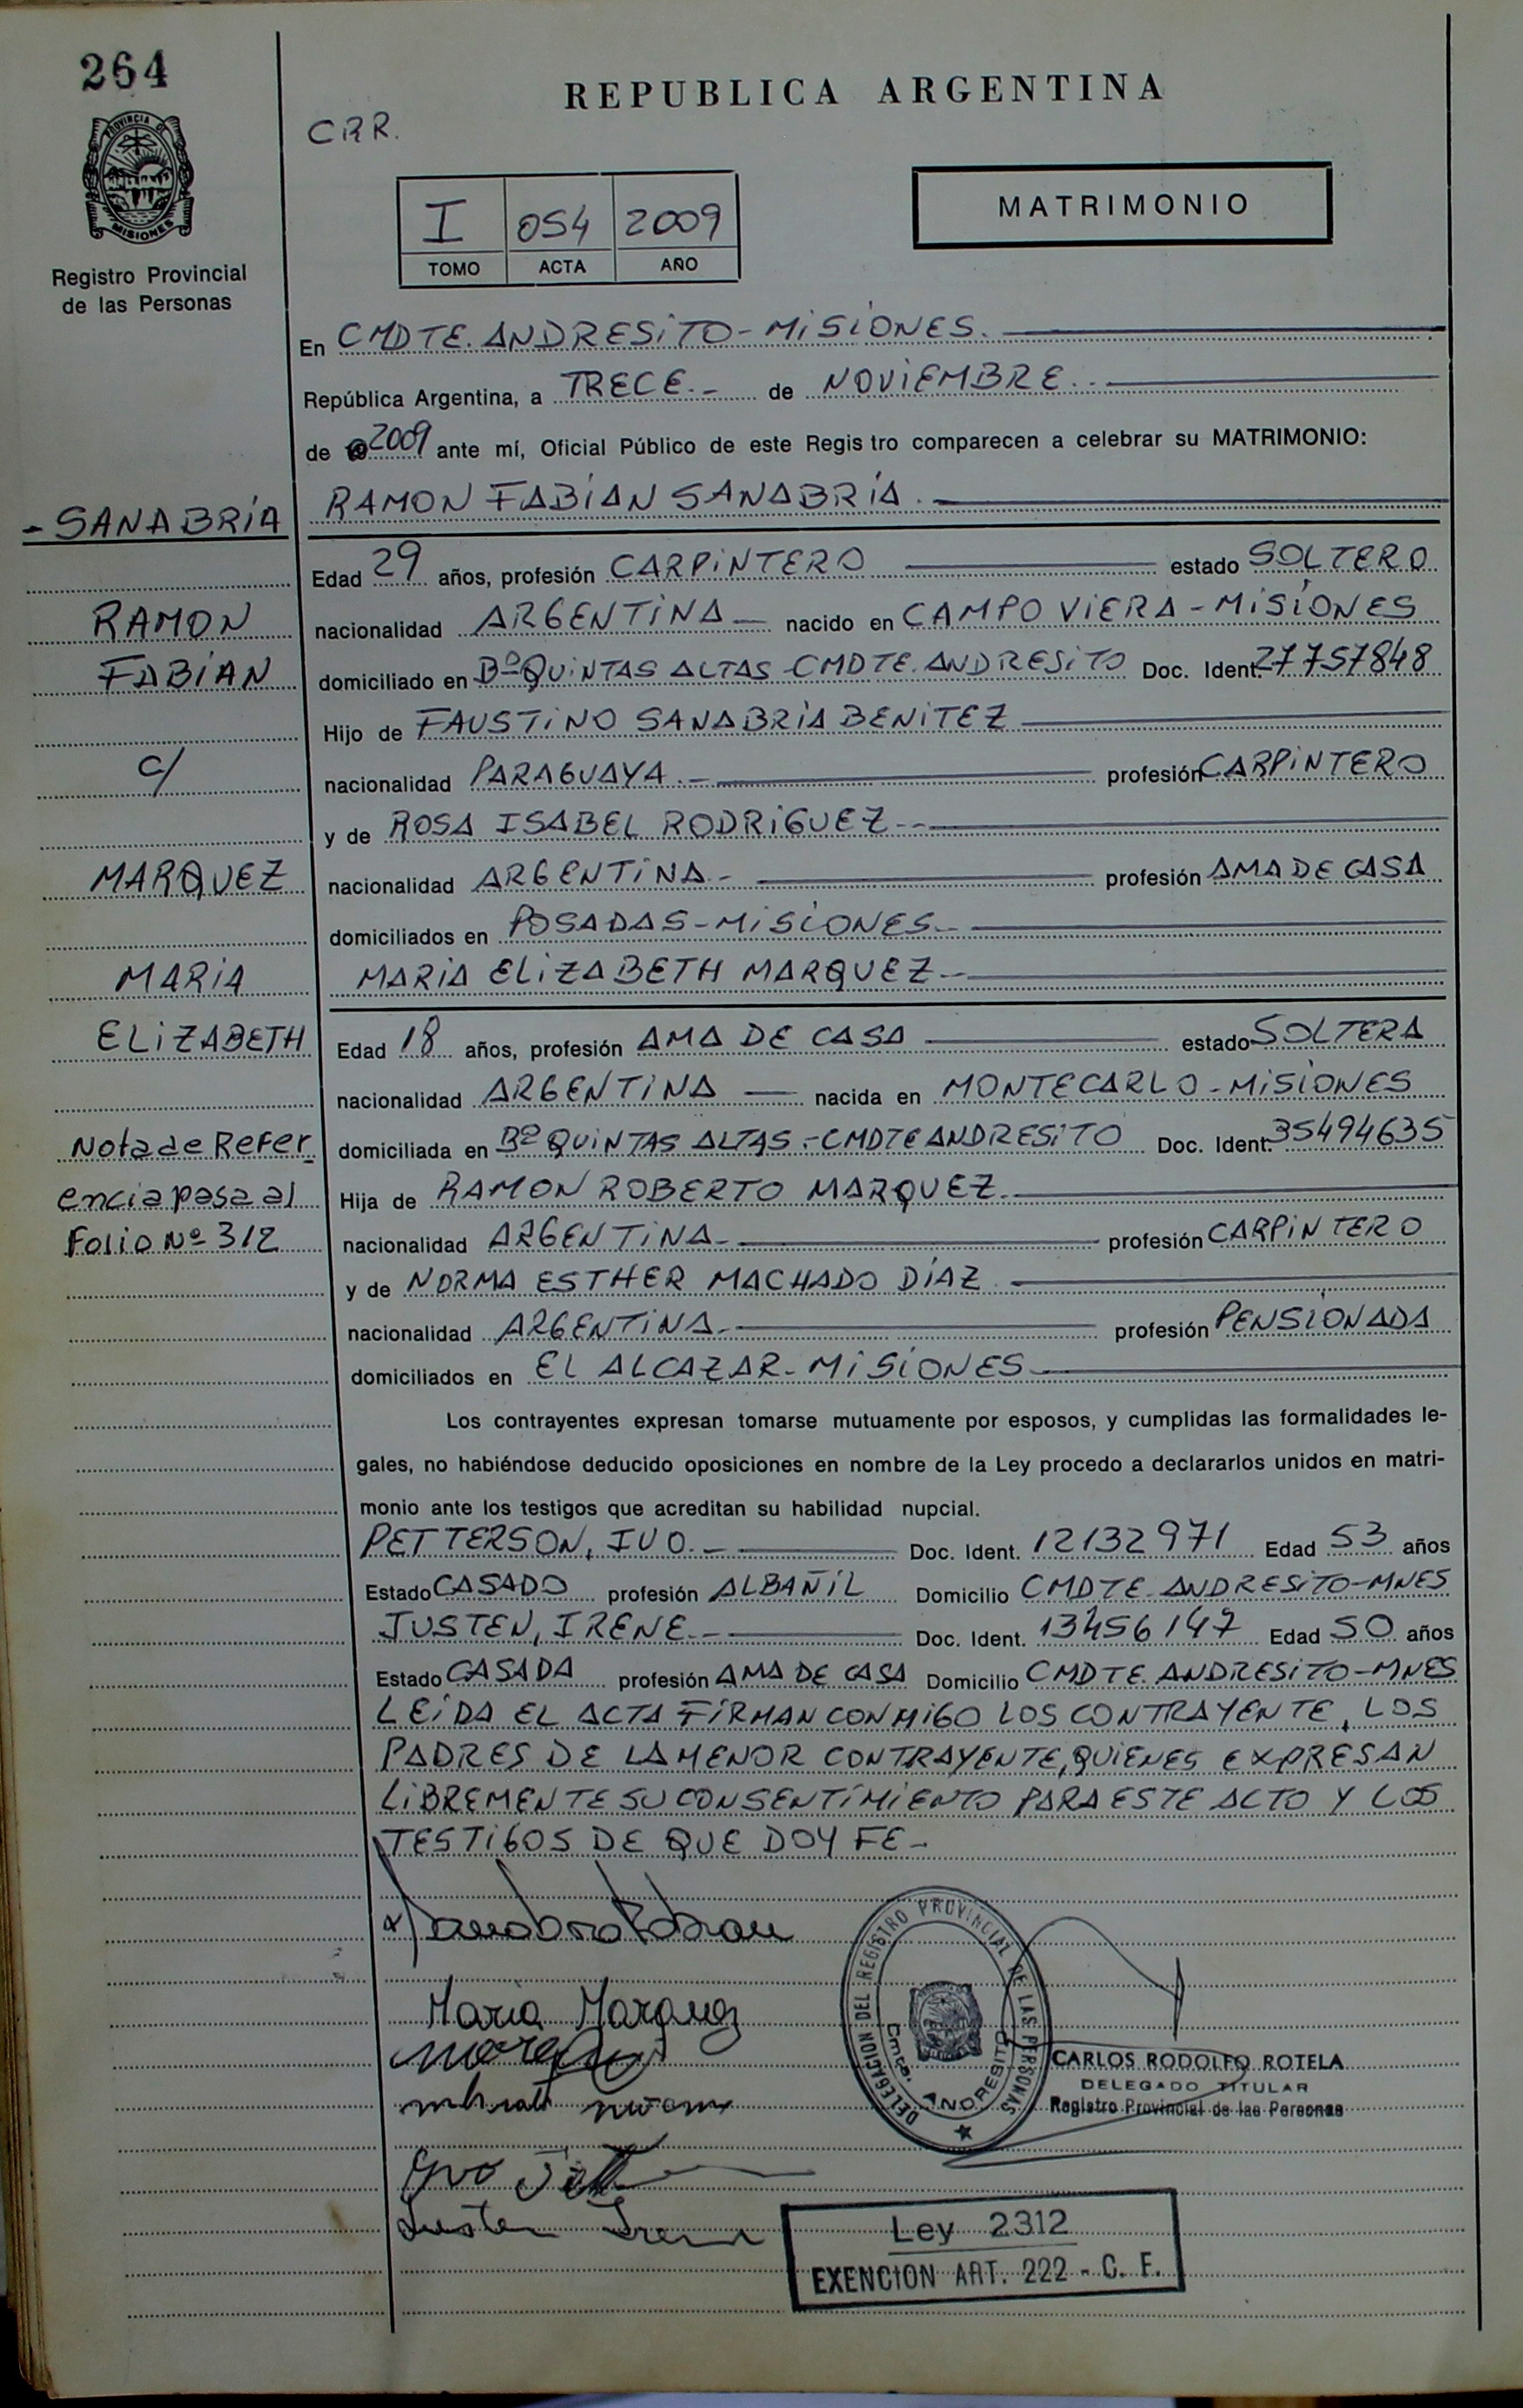 264
REPUBLICA ARGENTINA
CRR.
PROVINCIA DE
MISIONES
Registro Provincial
de las Personas
I 054 2009
TOMO ACTA AÑO
MATRIMONIO
En CMDTE. ANDRESITO - MISIONES.
República Argentina, a TRECE.- de NOVIEMBRE.
de 2009 ante mí, Oficial Público de este Registro comparecen a celebrar su MATRIMONIO:
- SANABRIA
RAMON FABIAN SANABRIA.
Edad 29 años, profesión CARPINTERO estado SOLTERO
RAMON
nacionalidad ARGENTINA nacido en CAMPO VIERA - MISIONES
FABIAN
domiciliado en Bº QUINTAS ALTAS - CMDTE. ANDRESITO Doc. Ident. 27757848
Hijo de FAUSTINO SANABRIA BENITEZ
c/
nacionalidad PARAGUAYA.- profesión CARPINTERO
y de ROSA ISABEL RODRIGUEZ.-
MARQUEZ
nacionalidad ARGENTINA.- profesión AMA DE CASA
domiciliados en POSADAS - MISIONES.-
MARIA
MARIA ELIZABETH MARQUEZ.-
ELIZABETH
Edad 18 años, profesión AMA DE CASA estado SOLTERA
nacionalidad ARGENTINA nacida en MONTECARLO - MISIONES
Nota de Refer-
domiciliada en Bº QUINTAS ALTAS.- CMDTE ANDRESITO Doc. Ident. 35494635
encia pasa al
Hija de RAMON ROBERTO MARQUEZ.
Folio Nº 312
nacionalidad ARGENTINA.- profesión CARPINTERO
y de NORMA ESTHER MACHADO DÍAZ
nacionalidad ARGENTINA.- profesión PENSIONADA
domiciliados en EL ALCAZAR - MISIONES
Los contrayentes expresan tomarse mutuamente por esposos, y cumplidas las formalidades le-
gales, no habiéndose deducido oposiciones en nombre de la Ley procedo a declararlos unidos en matri-
monio ante los testigos que acreditan su habilidad nupcial.
PETTERSON, IVO.- Doc. Ident. 12132971 Edad 53 años
Estado CASADO profesión ALBAÑIL Domicilio CMDTE. ANDRESITO - MNES
JUSTEN, IRENE.- Doc. Ident. 13456147 Edad 50 años
Estado CASADA profesión AMA DE CASA Domicilio CMDTE. ANDRESITO - MNES
LEIDA EL ACTA FIRMAN CONMIGO LOS CONTRAYENTE, LOS
PADRES DE LA MENOR CONTRAYENTE, QUIENES EXPRESAN
LIBREMENTE SU CONSENTIMIENTO PARA ESTE ACTO Y LOS
TESTIGOS DE QUE DOY FE-
Sanabria Fabian
Maria Marquez
DELEGACION DEL REGISTRO PROVINCIAL DE LAS PERSONAS
Cmte. ANDRESITO
CARLOS RODOLFO ROTELA
DELEGADO TITULAR
Registro Provincial de las Personas
Justen Irene
Ley 2312
EXENCION ART. 222 - C. F.